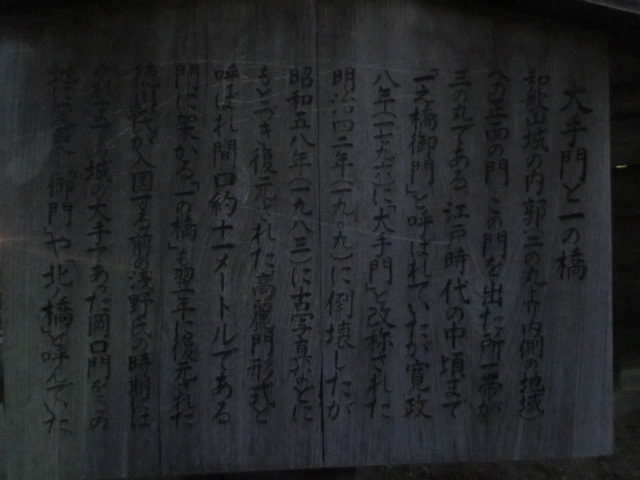 大手門と一の橋
和歌山城の内郭(二の丸より内側の地域)
への正面の門 この門を出た所一帯が
三の丸である 江戸時代の中頃まで
「一之橋御門」と呼ばれていたが寛政
八年(一七九六)に「大手門」と改称された
明治四二年(一九〇九)に倒壊したが
昭和五八年(一九八三)に古写真などに
もとづき復元された 高麗門形式と
呼ばれ間口約十一メートルである
門に架かる「一の橋」も翌年に復元された
徳川氏が入国する前の浅野氏の時期は
それまでの城の大手であった岡口門をこの
地に
御門」や「北ノ橋」と呼んでいた